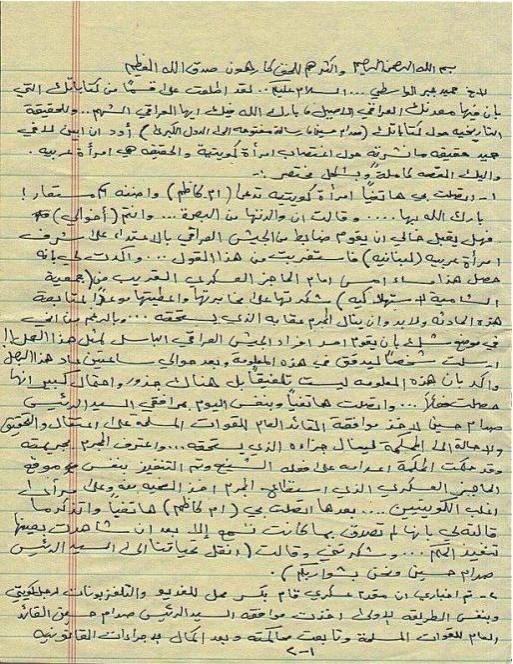 بسم الله الرحمن الرحيم واكثرهم للحق كارهون صدق الله العظيم
الاخ حميد عبد الواسطي ... السلام عليكم .. لقد اطلعت على قسمًا من كتاباتك التي
بان فيها معدنك العراقي الاصيل بارك الله فيك ايها العراقي الشهم ... وللحقيقة
التاريخيه حول كتاباتك ( صدام حسين رسالة مفتوحه الى الدول الكبرى ) أود ان ابين للاخ
حميد حقيقه ما نشرته حول اغتصاب امرأة كويتية والحقيقه هي امرأة عربيه .
واليك القصه كاملةً وبشكل مختصر :-
١- اتصلت بي هاتفياً امرأة كويتيه تدعا ( ام كاظم ) واضنه اسم مستعار !
بارك الله بها .... وقالت ان والدتها من البصرة ... وانتم ( أخوالي )
فهل يقبل خالي ان يقوم ضابط من الجيش العراقي بالاعتداء على شرف
امرأة عربيه ( لبنانيه ) فاستغربت من هذا القول ... وأكدت لي بانه
حصل هذا مساء امس امام الحاجز العسكري القريب من ( جمعية
الشاميه الاستهلاكيه ) شكرتها على مخابرتها واعطيتها موعدًا لمتابعة
هذه الحادثه ولابد وان ينال المجرم عقابه الذي يستحقه ... وبالرغم من انني
في موضع شك بان يقوم احد افراد الجيش العراقي الباسل بمثل هذا العمل !!
ارسلت شخصًا ليدقق في هذه المعلومه وبعد حوالي ساعتين عاد هذا الرجل
واكد بان هذه المعلومه ليست تلفيقاً بل هناك جذور واحتمال كبير انها
حصلت فعلاً ... واتصلت هاتفياً وبنفس اليوم بمرافقي السيد الرئيس
صدام حسين لاخذ موافقة القائد العام للقوات المسلحه على اعتقال والتحقيق
والاحالة الى المحكمة لينال جزاءه الذي يستحقه ... واعترف المجرم بجريمته
وقد حكمت المحكمة اعدامه على فعله الشنيع وتم التنفيذ بنفس موقع
الحاجز العسكري الذي استغله المجرم اخذ الضحيه منه وعلى مرأى
اغلب الكويتيين ... بعدها اتصلت بي ( ام كاظم ) هاتفياً واتذكر ما
قالته لي بانها لم تصدق بما كانت تسمع إلا بعد ان شاهدت بعينها
تنفيذ الحكم ... وشكرتني وقالت ( انقل تحياتنا الى السيد الرئيس
صدام حسين ونحن بشواربكم ) .
٢- تم اخباري ان مقدم عسكري قام بكسر محل للفديو والتلفزيونات لاحد الكويتي
وبنفس الطريقه الاولى اخذت موافقه السيد الرئيس صدام حسين القائد
العام للقوات المسلحة وتابعت محاكمته وبعد اكمال الاجراءات القانونيه
١-٢